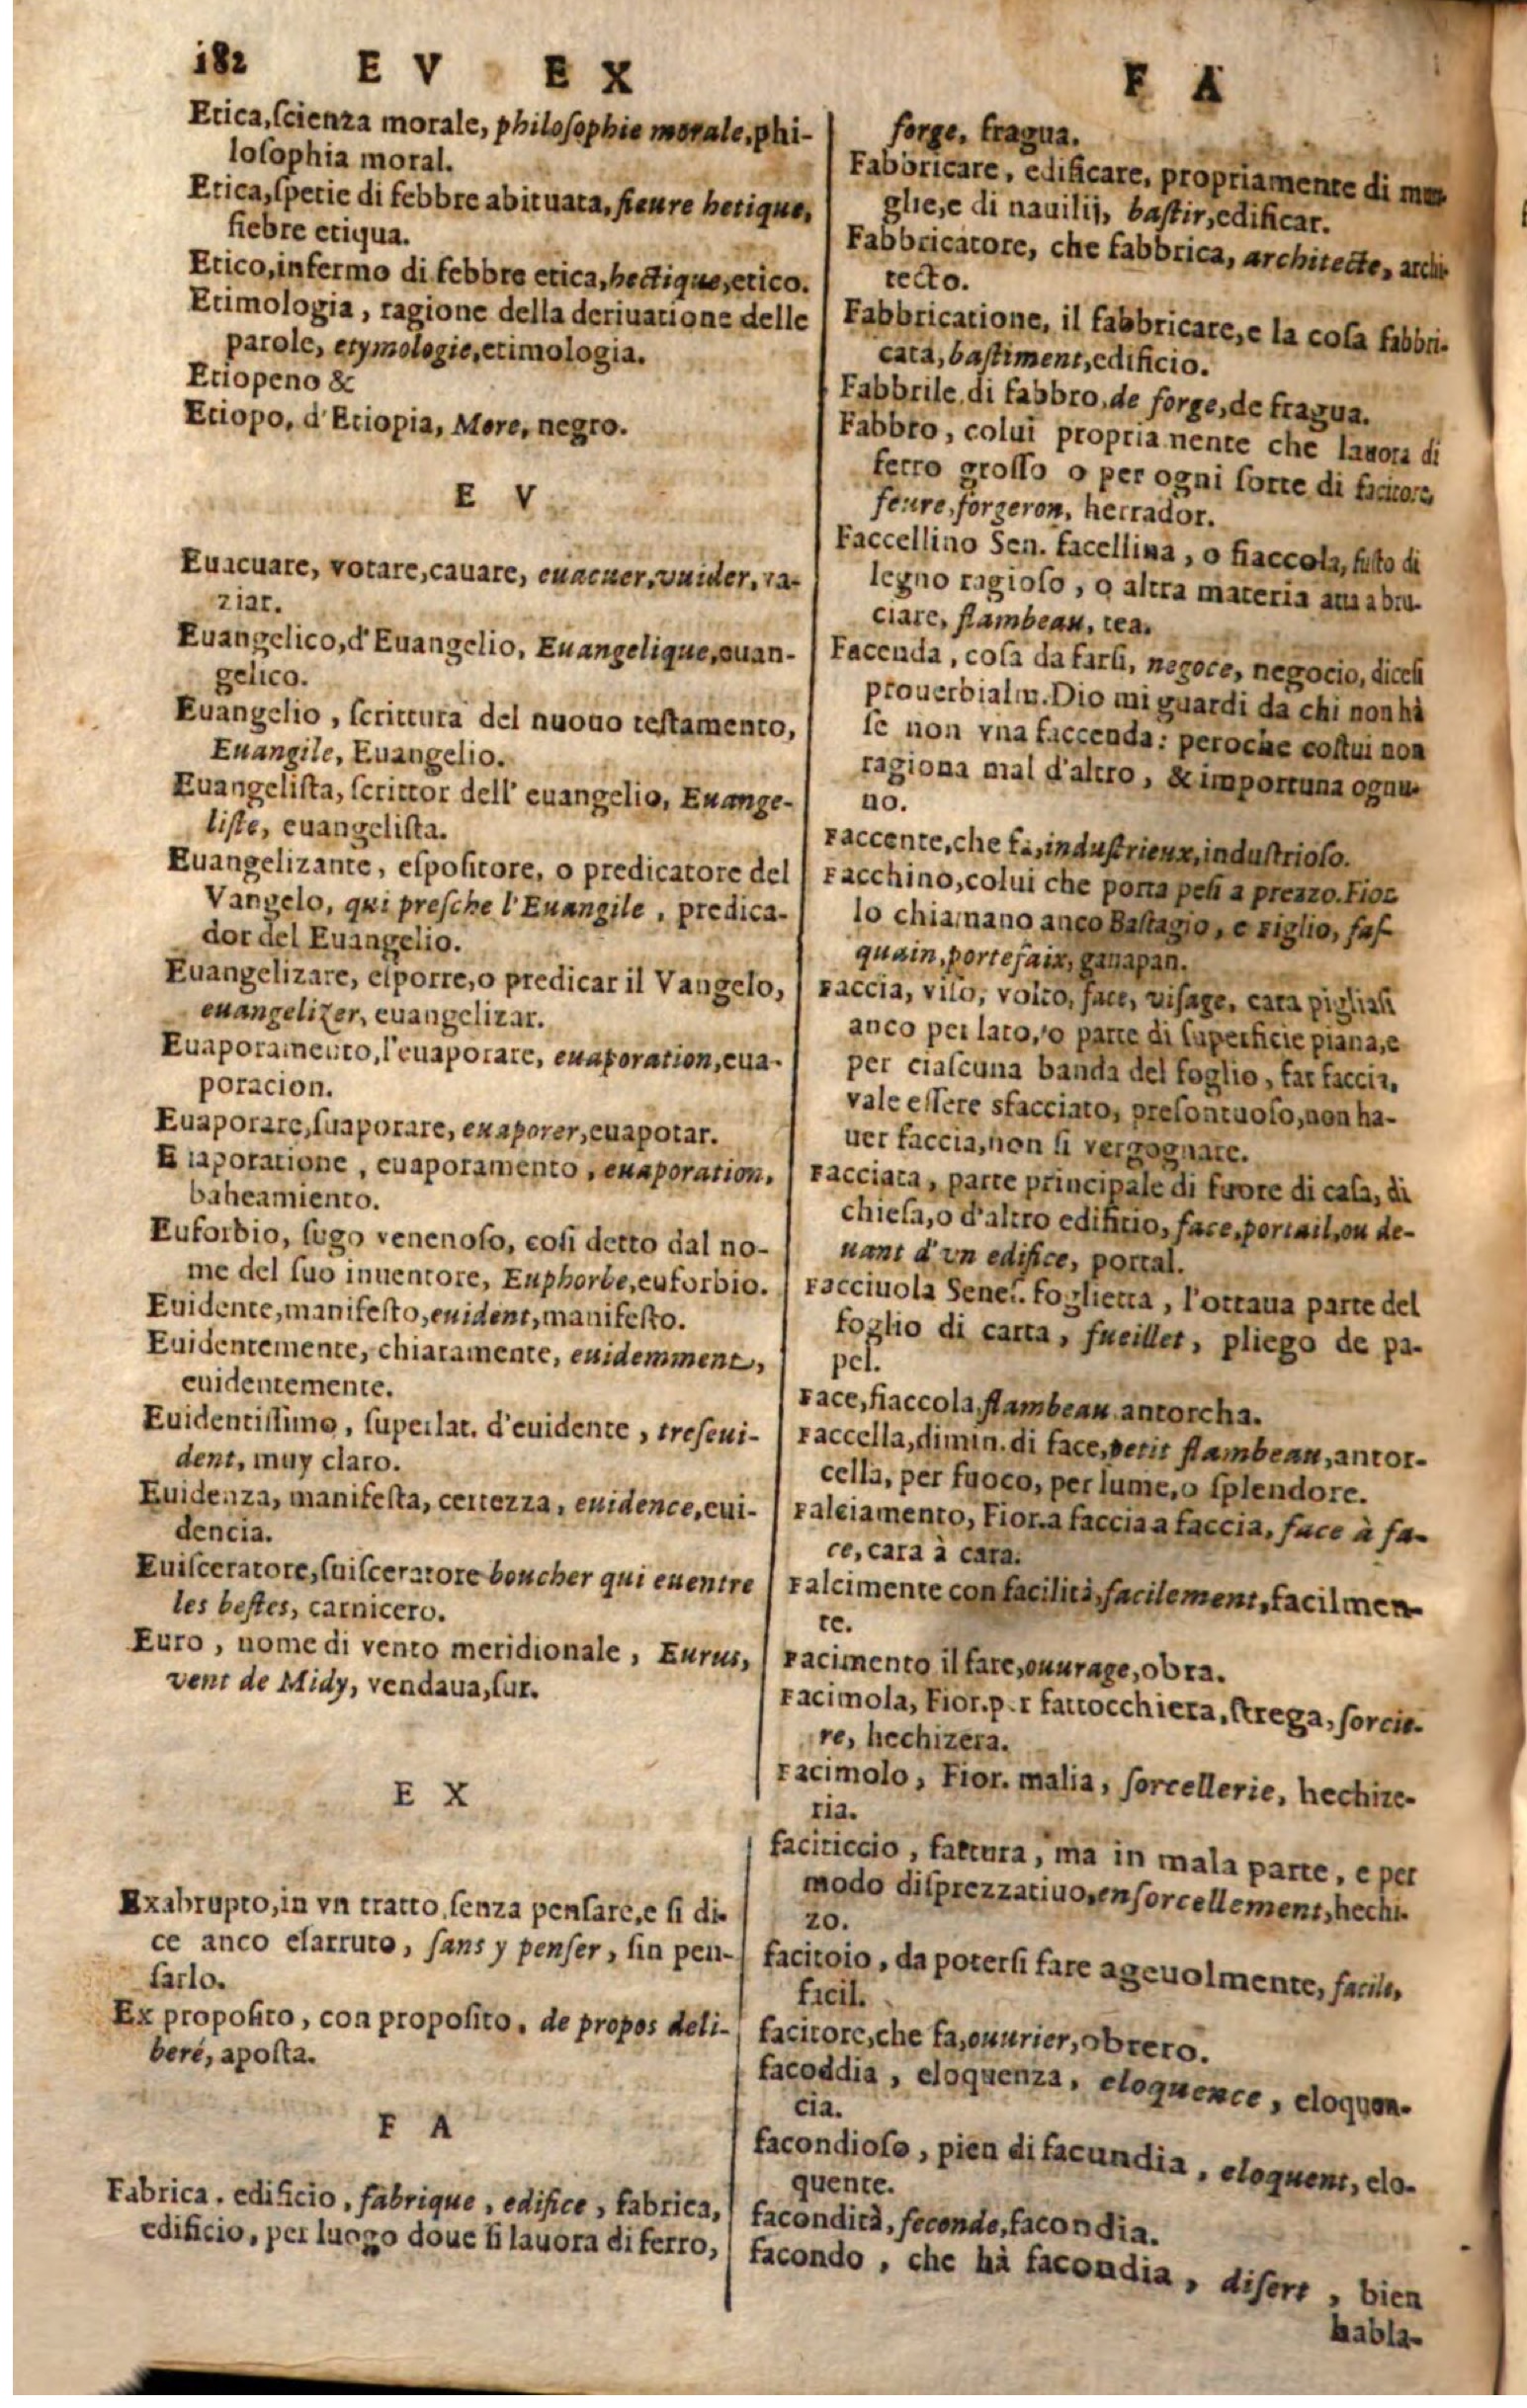 182 E V E X F A
Etica,ſcienza morale, philoſophie morale,phi-
loſophia moral.
Etica,ſpetie di febbre abituata, fieure hetique,
fiebre etiqua.
Etico,infermo di febbre etica,hectique,etico.
Etimologia , ragione della deriuatione delle
parole, etymologie,etimologia.
Etiopeno &
Etiopo, d'Etiopia, More, negro.
E V
Euacuare, votare,cauare, euacuer,vuider, va-
ziar.
Euangelico,d'Euangelio, Euangelique,euan-
gelico.
Euangelio , ſcrittura del nuouo teſtamento,
Euangile, Euangelio.
Euangeliſta, ſcrittor dell' euangelio, Euange-
liſte, euangeliſta.
Euangelizante, eſpoſitore, o predicatore del
Vangelo, qui preſche l'Euangile , predica-
dor del Euangelio.
Euangelizare, eſporre,o predicar il Vangelo,
euangelizer, euangelizar.
Euaporamento,l'euaporare, euaporation,eua-
poracion.
Euaporare,ſuaporare, euaporer,euapotar.
Euaporatione , euaporamento , euaporation,
baheamiento.
Euforbio, ſugo venenoſo, coſi detto dal no-
me del ſuo inuentore, Euphorbe,euforbio.
Euidente,manifeſto,euident,manifeſto.
Euidentemente, chiaramente, euidemment,
euidentemente.
Euidentiſſimo , ſuperlat. d'euidente , treſeui-
dent, muy claro.
Euidenza, manifeſta, certezza , euidence,eui-
dencia.
Euiſceratore,ſuiſceratore boucher qui euentre
les beſtes, carnicero.
Euro , nome di vento meridionale , Eurus,
vent de Midy, vendaua,ſur.
E X
Exabrupto,in vn tratto,ſenza penſare,e ſi di-
ce anco eſarruto, ſans y penſer , ſin pen-
ſarlo.
Ex propoſito , con propoſito , de propos deli-
beré, apoſta.
F A
Fabrica , edificio , fabrique , edifice , fabrica,
edificio, per luogo doue ſi lauora di ferro,
forge, fragua.
Fabbricare , edificare, propriamente di mu-
glie,e di nauilij, baſtir,edificar.
Fabbricatore, che fabbrica, architecte, archi-
tecto.
Fabbricatione, il fabbricare,e la coſa fabbri-
cata,baſtiment,edificio.
Fabbrile,di fabbro,de forge,de fragua.
Fabbro , colui propriamente che lauora di
ferro groſſo o per ogni ſorte di facitore,
feure,forgeron, herrador.
Faccellino Sen. facellina , o fiaccola, fuſto di
legno ragioſo , o altra materia atta a bru-
ciare, flambeau, tea.
Facenda , coſa da farſi, negoce, negocio, diceſi
prouerbialm.Dio mi guardi da chi non hà
ſe non vna faccenda: peroche coſtui non
ragiona mal d'altro , & importuna ognu-
no.
Faccente,che fa,induſtrieux,induſtrioſo.
Facchino,colui che porta peſi a prezzo.Fior.
lo chiamano anco Baſtagio, e Figlio, faſ-
quain,portefaix, ganapan.
Faccia, viſo, volto, face, viſage, cara pigliaſi
anco per lato, o parte di ſuperficie piana,e
per ciaſcuna banda del foglio , far faccia,
vale eſſere sfacciato, preſontuoſo,non ha-
uer faccia,non ſi vergognare.
Facciata , parte principale di fuore di caſa, di
chieſa,o d'altro edifitio, face,portail,ou de-
uant d'vn edifice, portal.
Facciuola Seneſ. foglietta , l'ottaua parte del
foglio di carta , fueillet , pliego de pa-
pel.
Face,fiaccola,flambeau antorcha.
Faccella,dimin. di face,petit flambeau,antor-
cella, per fuoco, per lume,o ſplendore.
Falciamento, Fior.a faccia a faccia, face à fa-
ce,cara à cara.
Falcimente con facilità,facilement,facilmen-
te.
Facimento il fare,ouurage,obra.
Facimola, Fior.per fattocchiera,ſtrega, ſorcie-
re, hechizera.
Facimolo, Fior. malia, ſorcellerie, hechize-
ria.
faciticcio , fattura , ma in mala parte , e per
modo diſprezzatiuo,enſorcellement,hechi-
zo.
facitoio , da poterſi fare ageuolmente, facile,
facil.
facitore,che fa,ouurier,obrero.
facoddia , eloquenza , eloquence , eloquen-
cia.
facondioſo , pien di facundia , eloquent, elo-
quente.
facondità, feconde,facondia.
facondo , che hà facondia , diſert , bien
habla-